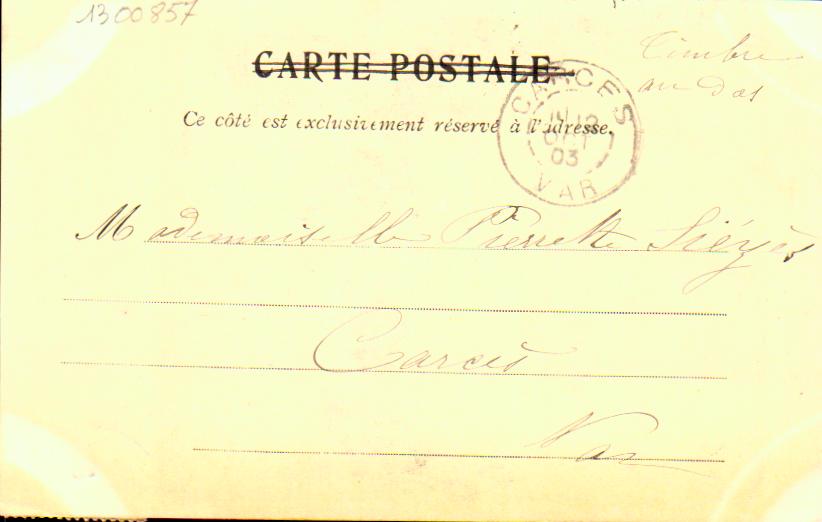 1300857
CARTE POSTALE
Timbre
au dos
Ce côté est exclusivement réservé à l'adresse.
CARCES
12
OCT
03
VAR
Mademoiselle Pierrette Siéyès
Carcès
Var